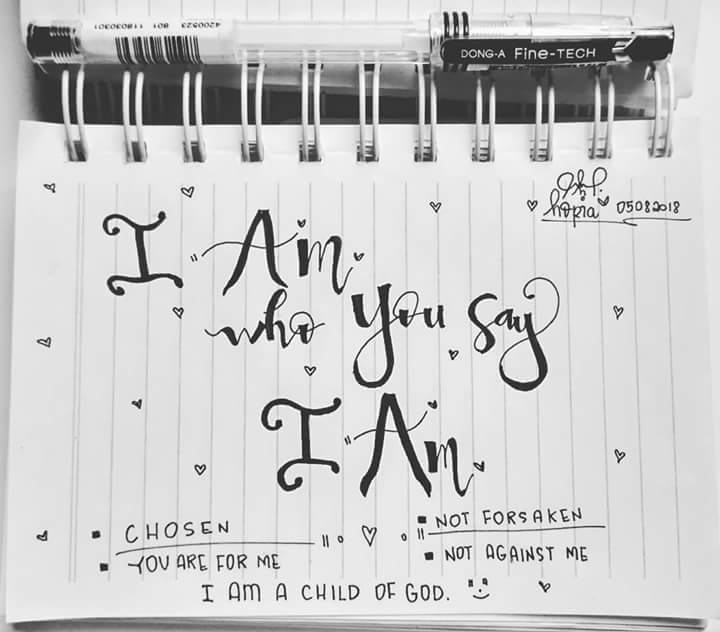 DONG-A Fine-TECH
4200523 801 11803301
hopia 05082018
I Am
who you say
I Am
CHOSEN
NOT FORSAKEN
YOU ARE FOR ME
NOT AGAINST ME
I AM A CHILD OF GOD.